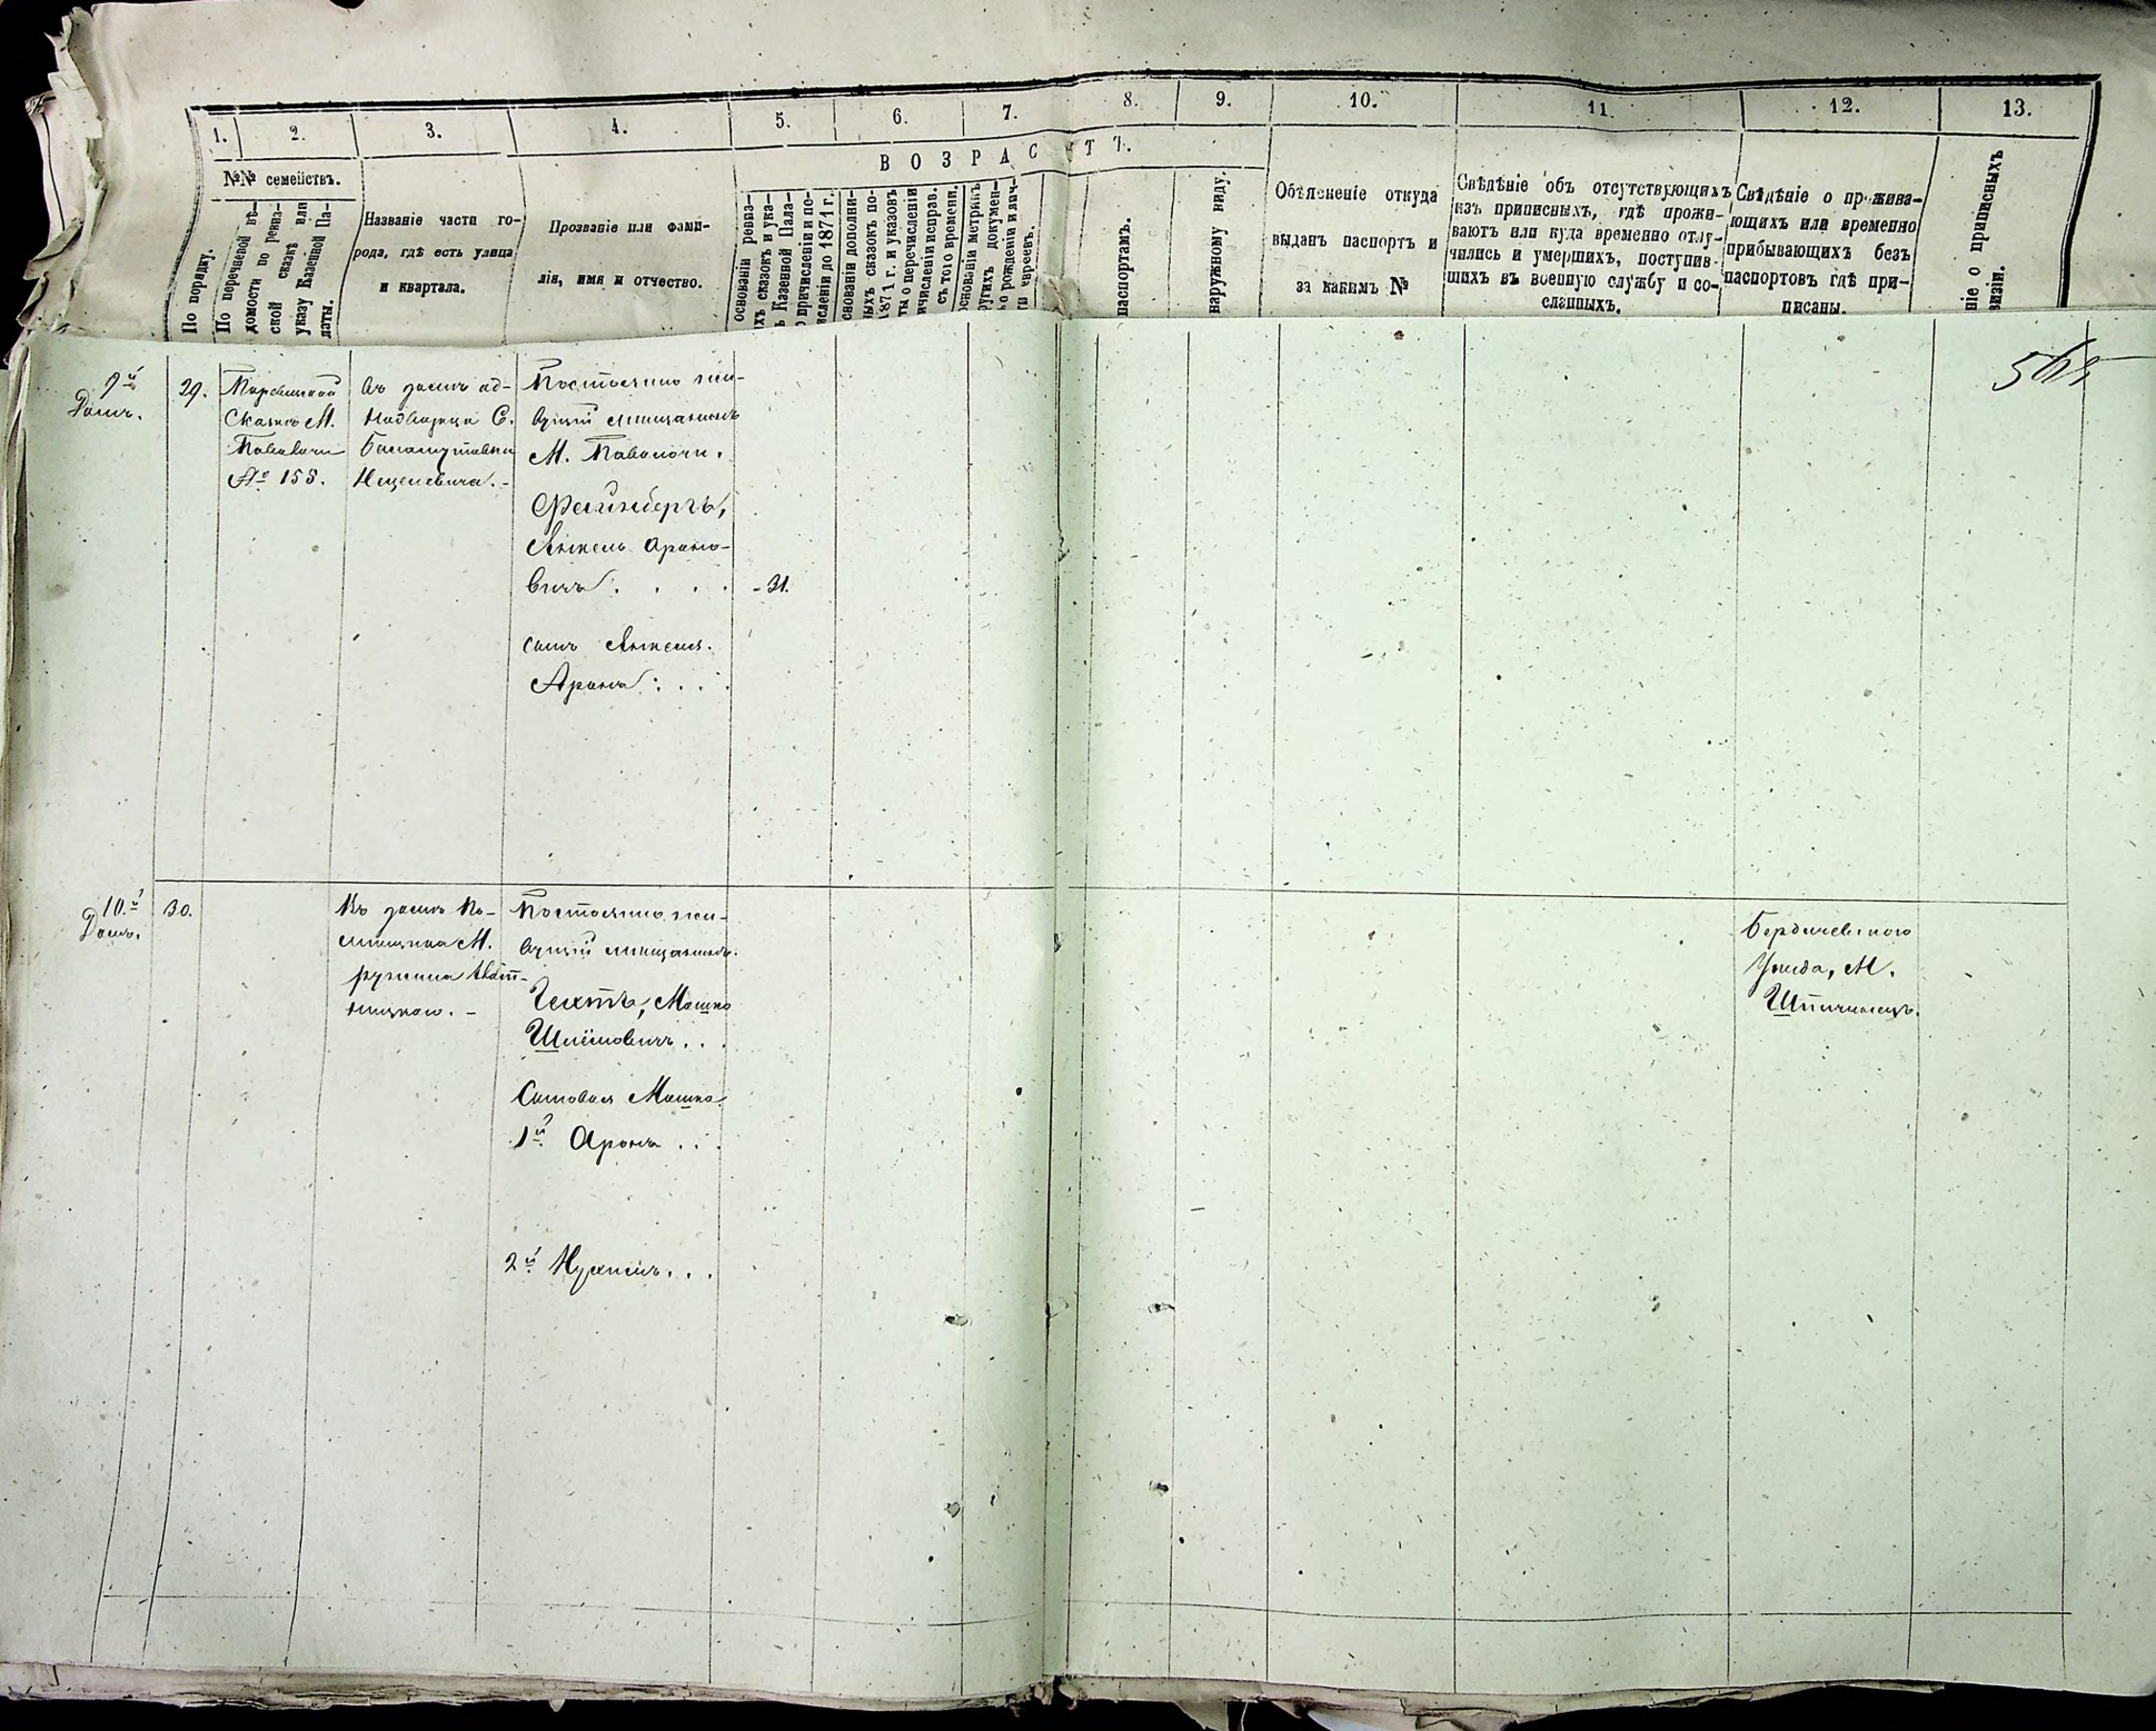 1.
2.
3.
4.
5.
6.
7.
8.
9.
10.
11.
12.
13.
В О З Р А С Т Ъ.
№№ семействъ.
По порядку.
По перечневой вѣ-
домости по ревиз-
ской сказкѣ или
указу Казенной Па-
латы.
Названіе части го-
рода, гдѣ есть улица
и квартала.
Прозваніе или фами-
лія, имя и отчество.
основаніи ревиз-
хъ сказокъ и ука-
ъ Казенной Пала-
о причисленіи и по-
исленіи до 1871 г.
снованіи дополни-
ныхъ сказокъ по-
1871 г. и указовъ
ты о перечисленіи
ичисленіи исправ.
съ того времени.
основаніи метрикъ
ругихъ докумен-
ъ о рожденіи и лич-
ти евреевъ.
паспортамъ.
наружному виду.
Объясненіе откуда
выданъ паспортъ и
за какимъ №
Свѣдѣніе объ отсутствующихъ
изъ приписныхъ, гдѣ прожи-
ваютъ или куда временно отлу-
чились и умершихъ, поступив-
шихъ въ военную службу и со-
сланныхъ.
Свѣдѣніе о прожива-
ющихъ или временно
прибывающихъ безъ
паспортовъ гдѣ при-
писаны.
ніе о приписныхъ
визіи.
9й
Домъ.
29.
Сказкѣ М.
Паволочи
№ 155.
въ домѣ од-
С.
Постоянно жи-
вущій мѣщанинъ
М. Паволочи.
Фейнбергъ,
Янкель Ароно-
вичъ . . . .
- 31.
сынъ Янкеля.
Аронъ . . .
10.й
Домъ.
30.
Въ домѣ По-
мѣщика М.
ружина
Постоянно жи-
вущій мѣщанинъ.
Гехтъ, Мошко
Шлёмовичъ . . .
Сыновья Мошка
1й Аронъ . . .
2й Нухимъ . . .
Бердичевского
Уѣзда, М.